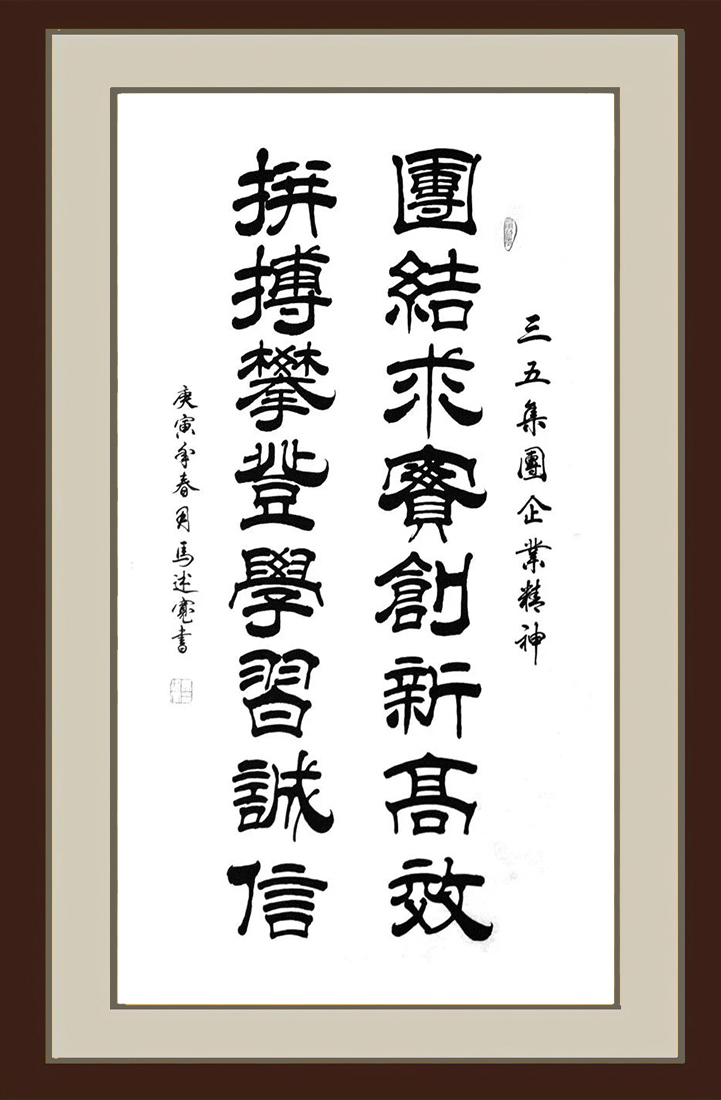 三五集團企業精神
團結求實創新高效
拼搏攀登學習誠信
庚寅年春月馬述寬書